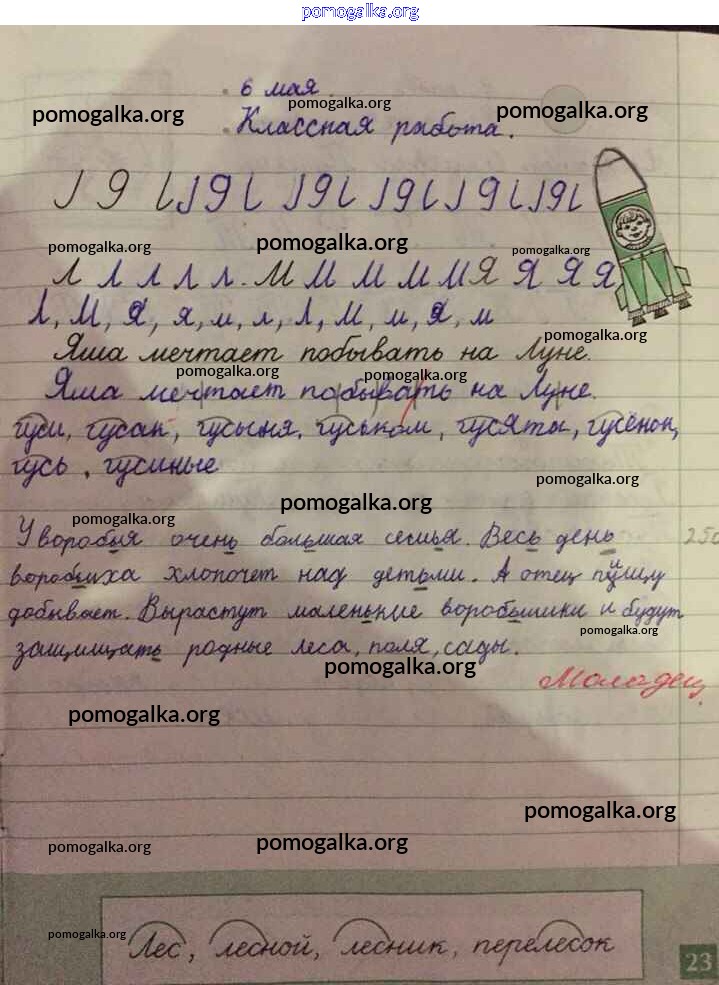 pomogalka.org
6 мая.
pomogalka.org pomogalka.org pomogalka.org
Классная работа.
pomogalka.org pomogalka.org pomogalka.org
Л Л Л Л Л. М М М М М Я Я Я Я
Л, М, Я, я, м, л, Л, М, м, Я, м
pomogalka.org
Яша мечтает побывать на Луне.
pomogalka.org pomogalka.org
Яша мечтает побывать на Луне.
гуси, гусак, гусыня, гуськом, гусята, гусёнок,
гусь, гусиные
pomogalka.org
pomogalka.org
pomogalka.org
У воробья очень большая семья. Весь день
воробьиха хлопочет над детьми. А отец пищу
добывает. Вырастут маленькие воробьишки и будут
pomogalka.org
защищать родные леса, поля, сады.
pomogalka.org
Молодец
pomogalka.org
pomogalka.org
pomogalka.org pomogalka.org
pomogalka.org
Лес, лесной, лесник, перелесок
23